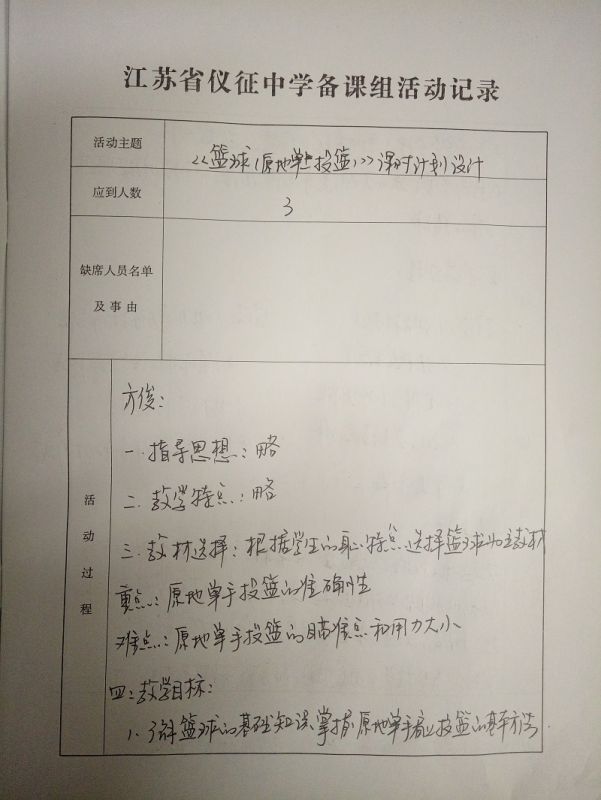 江苏省仪征中学备课组活动记录
活动主题
《篮球(原地单手投篮)》课时计划设计
应到人数
3
缺席人员名单
及事由
活动过程
方俊:
一.指导思想:略
二.教学特点:略
三.教材选择:根据学生的身心特点,选择篮球为主教材
重点:原地单手投篮的准确性
难点:原地单手投篮的瞄准点和用力大小
四:教学目标:
1.了解篮球的基础知识,掌握原地单手肩上投篮的基本方法